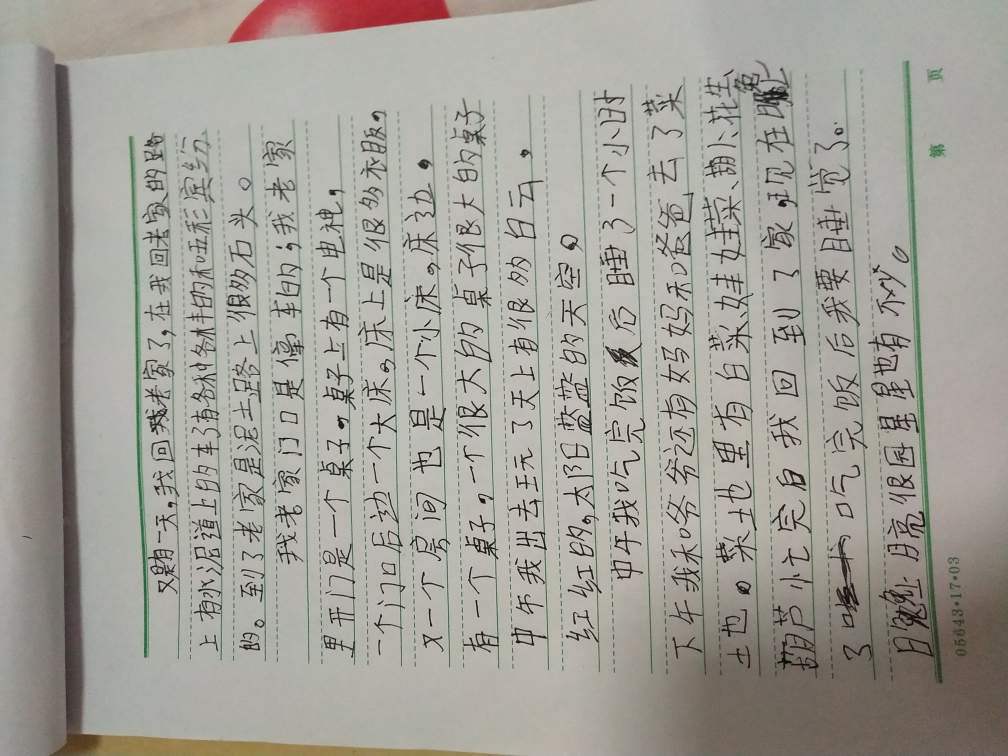 又是一天,我回我老家了,在我回老家的路
上有水泥道上的车了有各种各样的和五彩宾纷
的。到了老家是泥土路上很多石头。
我老家门口是停车的;我老家
里开门是一个桌子,桌子上有一个电视,
一个门口后边一个大床,床上是很多衣服,
又一个房间也是一个小床,床边,
有一个桌子。一个很大的桌子很大的桌子
中午我出去玩了天上有很多白云,
红红的,太阳蓝蓝的天空。
中午我吃完饭后睡了一个小时
下午我和爷爷还有妈妈和爸爸去了菜
土地。菜土地里有白菜、娃娃菜、葫卜、花生、
葫芦忙完后我回到了家,现在
了吃完饭后我要睡觉了。
月亮很园星星也有不少。
第 页
05643·17·03